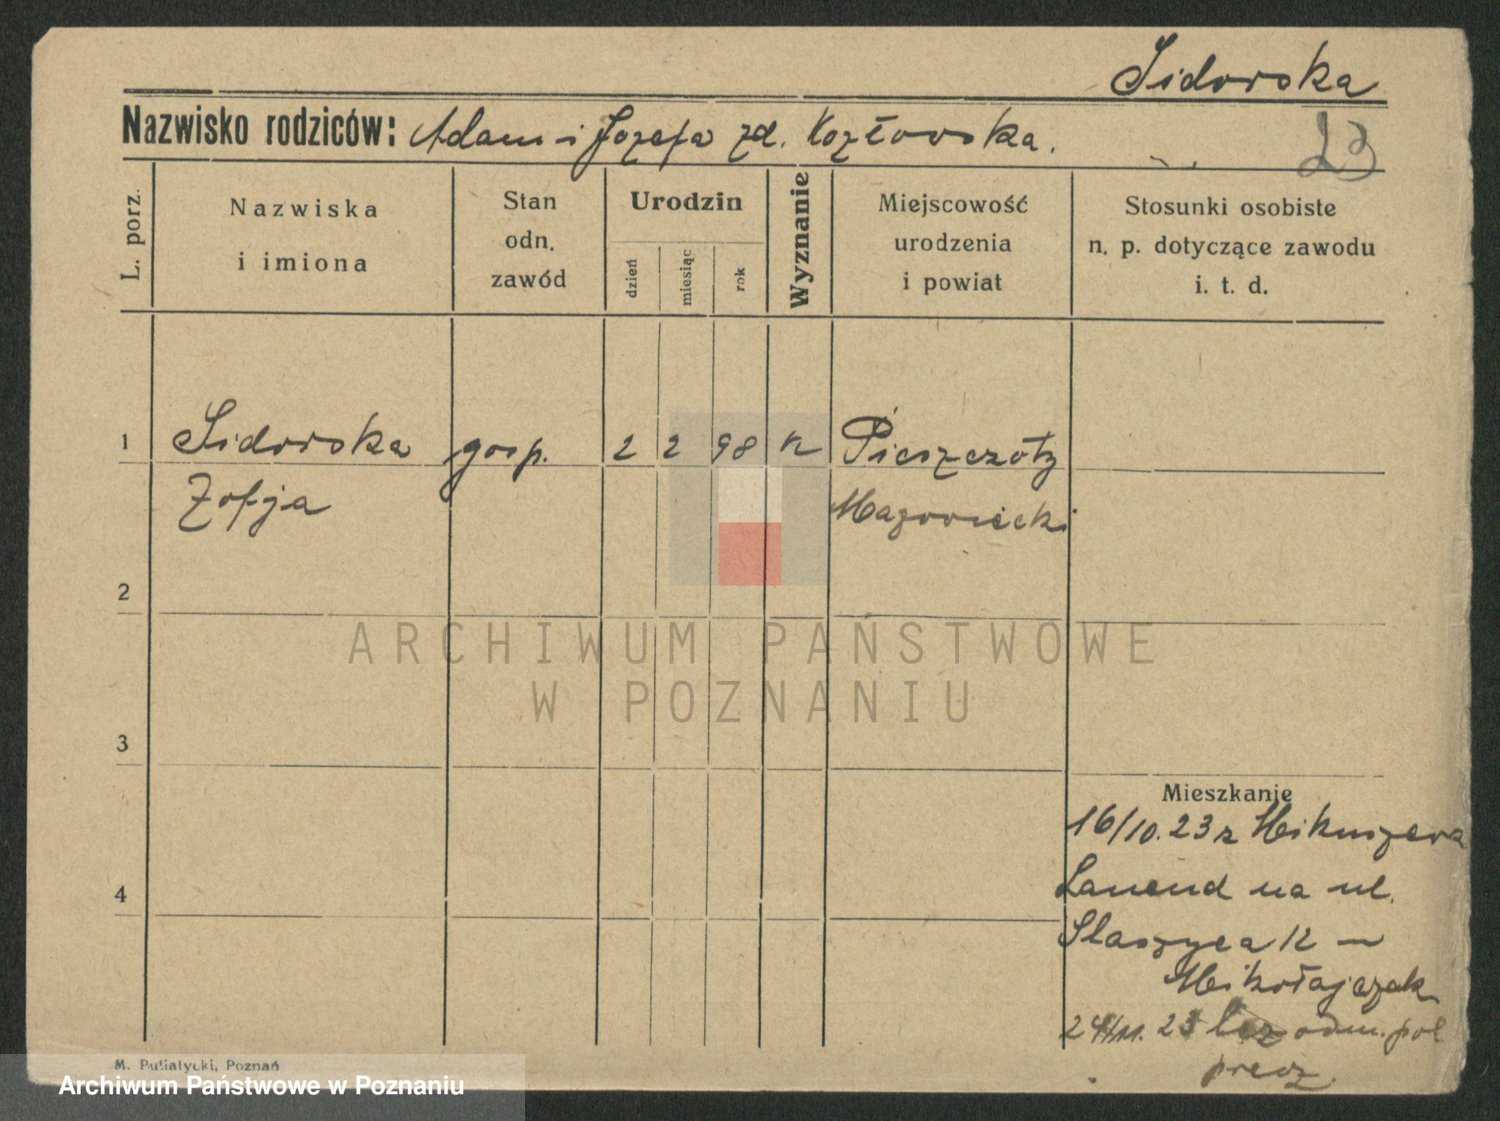 Sidorska
Nazwisko rodziców: Adam i Józefa zd. Kozłowska.
23
L. porz.
Nazwiska
i imiona
Stan
odn.
zawód
Urodzin
dzień
miesiąc
rok
Wyznanie
Miejscowość
urodzenia
i powiat
Stosunki osobiste
n. p. dotyczące zawodu
i. t. d.
1 Sidorska gosp. 2 2 98 k Pieszczoty
Zofja Mazowiecki
2
3
4
Mieszkanie
16/10. 23 z
na ul.
Staszyca 12 —
Mikołajczak
23 bez odm. pol
M. Putiatycki, Poznań
ARCHIWUM PAŃSTWOWE
W POZNANIU
Archiwum Państwowe w Poznaniu